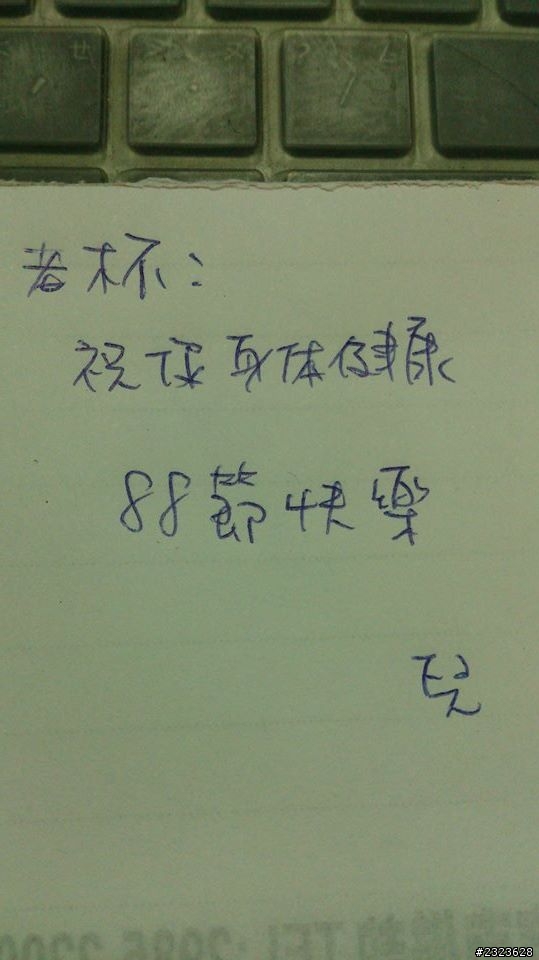 老杯:
祝保身体健康
88節快樂
兒
#2323628